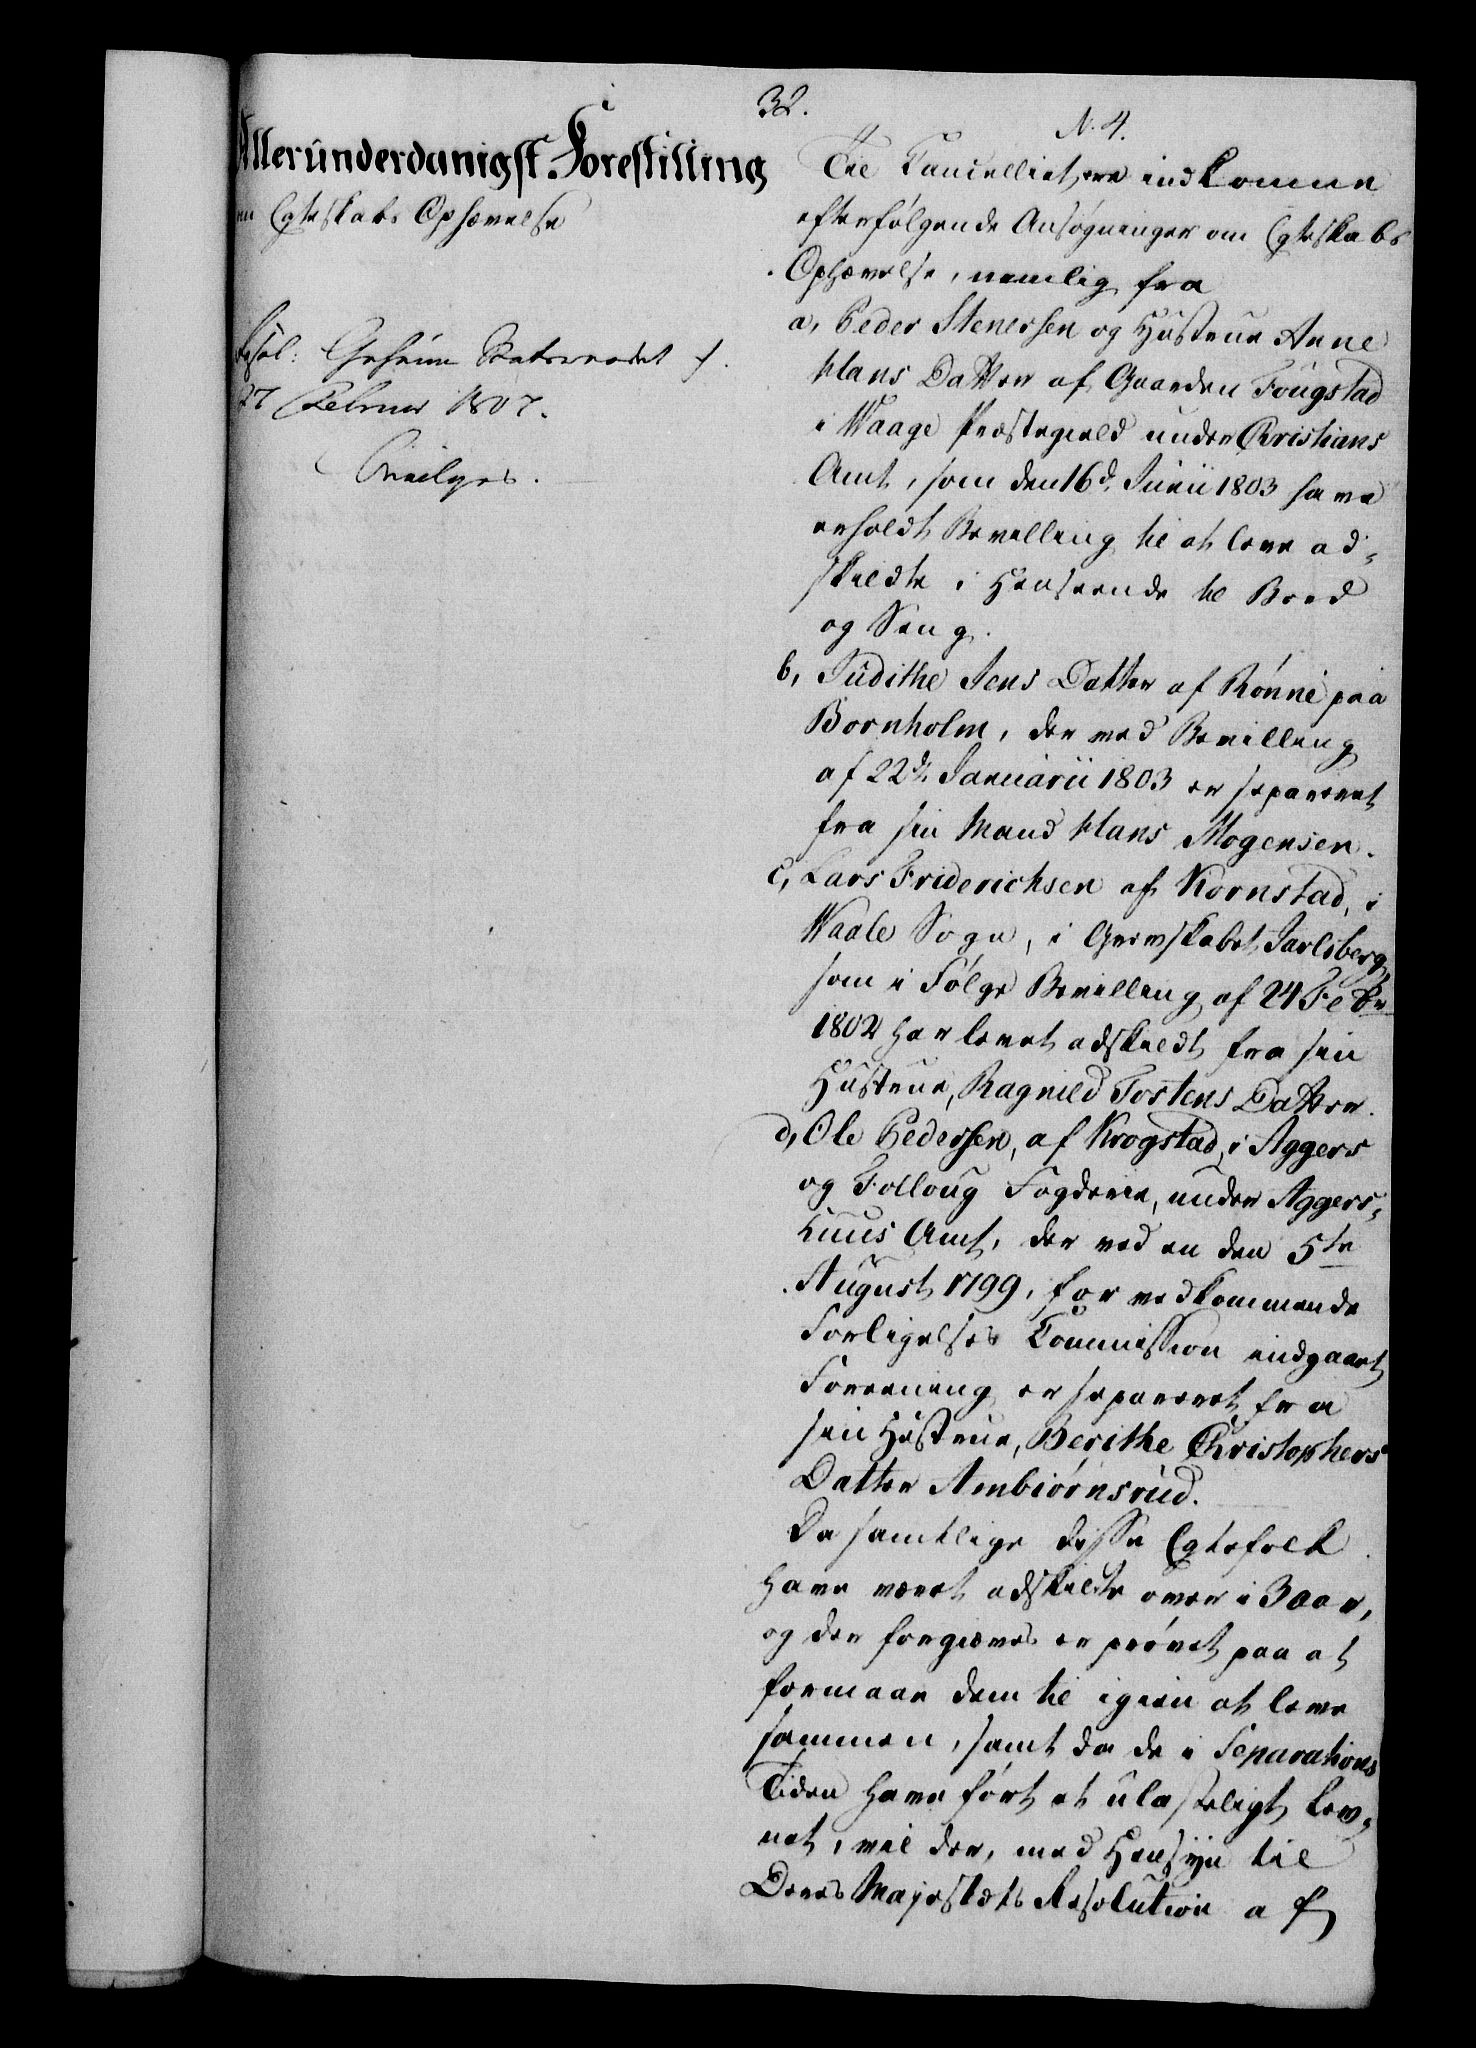 32.
Allerunderdanigst Forestilling
om Egteskabs Ophævelse
Resol: Geheime Statsraadet d.
27 Februar 1807.
Bevilges.
N. 4.
Til Cancelliet ere indkomne
efterfølgende Ansøgninger om Egteskabs
Ophævelse, nemlig fra
a, Peder Stenersen og Hustrue Anne
Hans Datter af Gaarden Fougstad
i Waage Præstegield under Christians
Amt, som den 16de Junii 1803 have
erholdt Bevilling til at leve ad-
skildte i Henseende til Bord
og Seng.
b, Judithe Jens Datter af Rønne paa
Bornholm, der ved Bevilling
af 22de Januarii 1803 er separeret
fra sin Mand Hans Mogensen.
c, Lars Friderichsen af Kornstad, i
Waale Sogn, i Grevskabet Jarlsberg,
som i Følge Bevilling af 24 Febr
1802 har levet adskildt fra sin
Hustrue, Ragnild Tostens Datter.
d, Ole Pedersen, af Krogstad, i Aggers
og Folloug Fogderie, under Aggers-
huus Amt, der ved en den 5te
August 1799, for vedkommende
Forligelses Commission indgaaet
Foreening er separeret fra
sin Hustrue, Berithe Christophers
Datter Ambiørnsrud.
Da samtlige disse Egtefolk
have været adskilte over i 3 Aar,
og der forgieves er prøvet paa at
formaae dem til igien at leve
sammen, samt da de i Separations
Tiden have ført et ulasteligt Lev-
net, vil der, med Hensyn til
Deres Majestæts Resolution af